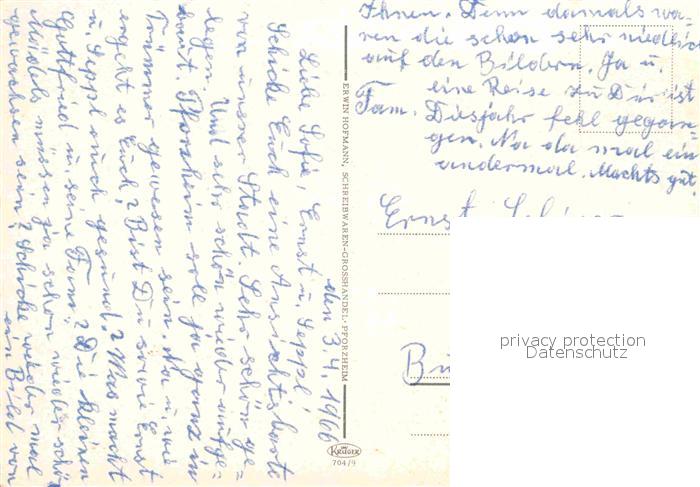 den 3.4.1966
Liebe Sofie, Ernst u. Seppl!
Schicke Euch eine Ansichtskarte
von unserer Stadt. Sehr schön ge=
legen. Und sehr schön wieder aufge=
baut. Pforzheim soll ja ganz in
Trümmer gewesen sein. Na u. wie
ergeht es Euch? Bist Du sowie Ernst
u. Seppl auch gesund? Was macht
Gottfried u. seine Fam.? Die kleinen
Mädels müssen ja schon wieder schön
gewachsen sein? Schicke wieder mal
ein Bild von
Ihnen. Denn damals wa-
ren die schon sehr niedlich
auf den Bildern. Ja u.
eine Reise zu Dir ist
Fam. Diesjahr fehl gegan-
gen. Na da mal ein
andermal. Machts gut.
Ernst
ERWIN HOFMANN, SCHREIBWAREN-GROSSHANDEL, PFORZHEIM
KRÜGER
704/9
privacy protection
Datenschutz